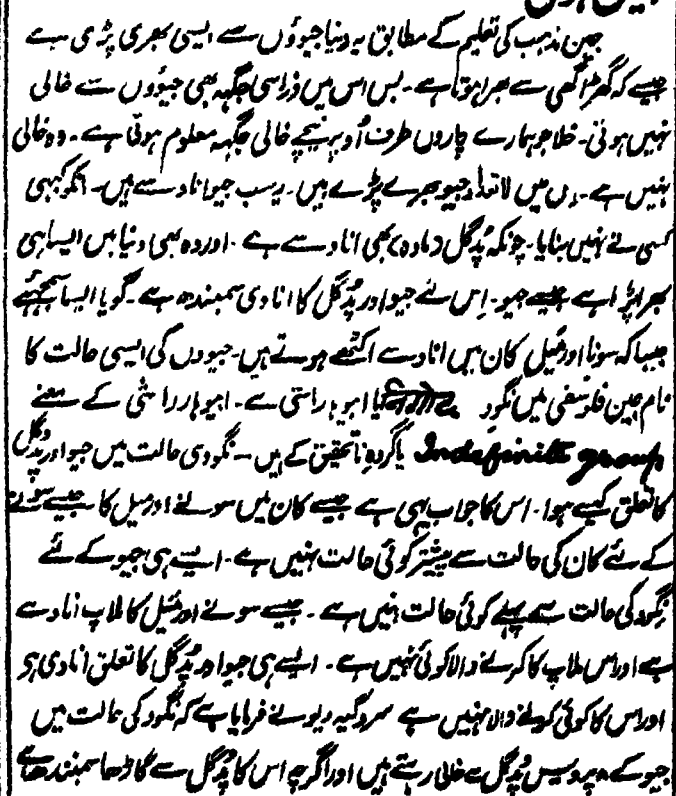 جین مذہب کی تعلیم کے مطابق یہ دنیا جیوؤں سے ایسی بھری پڑی ہے
جیسے کہ گھڑا گھی سے بھرا ہوتا ہے۔ بس اس میں ذراسی جگہہ بھی جیؤوں سے خالی
نہیں ہوتی۔ خلا جو ہمارے چاروں طرف اُوپر نیچے خالی جگہہ معلوم ہوتی ہے۔ وہ خالی
نہیں ہے۔ اس میں لاتعداد جیو بھرے پڑے ہیں۔ یہ سب جیو انادسے ہیں۔ انکو کبہی
کسی نے نہیں بنایا۔ چونکہ پُدگل (مادہ) بھی اناد سے ہے۔ اور وہ بھی دنیا میں ایسا ہی
بھرا پڑا ہے جیسے جیو۔ اِس لئے جیو اور پُدگل کا انادی سمبندھ ہے۔ گویا ایسا سمجھئے
جیسا کہ سونا اور مَیل کان میں اناد سے اکٹھے ہوتے ہیں۔ جیووں کی ایسی حالت کا
نام جین فلاسفی میں نگود निगोद یا ابیوہار راستی ہے۔ ابیوہار راشی کے معنے
Indefinite group یا گروہِ نا تحقیق کے ہیں۔ نگودی حالت میں جیو اور پدگل
کا تعلق کیسے ہوا۔ اس کا جواب یہی ہے جیسے کان میں سونے اور میل کا جیسے سونے
کے لئے کان کی حالت سے پیشتر کوئی حالت نہیں ہے۔ ایسے ہی جیو کے لئے
نگود کی حالت سے پہلے کوئی حالت نہیں ہے۔ جیسے سونے اور مَیل کا ملاپ اناد سے
ہے اور اس ملاپ کا کرنے والا کوئی نہیں ہے۔ ایسے ہی جیو اور پُدگل کا تعلق انادی ہو
اور اس کا کوئی کرنے والا نہیں ہے سروگیہ دیو نے فرمایا ہے کہ نگود کی حالت میں
جیو کے ۸ پردیس پُدگل سے خالی رہتے ہیں اور اگرچہ اس کا پُدگل سے گاڑھا سمبندھ ہے